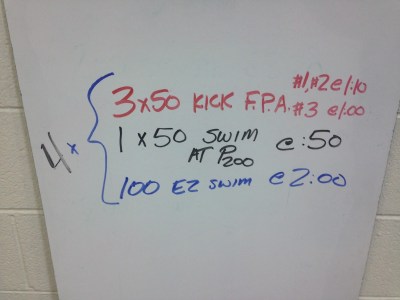 #1,#2 @ 1:10
3x50 KICK F.P.A. #3 @ 1:00
4x
1 x 50 SWIM @ :50
AT P200
100 EZ SWIM @ 2:00